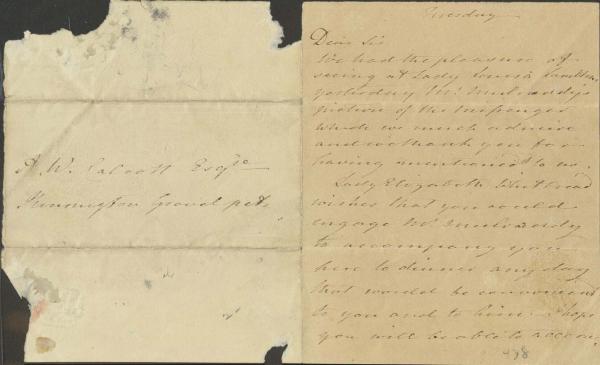 A. W. Calcott Esqre
Kensington Gravel pits
Tuesday
Dear Sir
We had the pleasure of
seeing at Lady
yesterday Mr. Mulready's
picture of the
which we much admire
and we thank you for
having mentioned it to us.
Lady Elizabeth Whitbread
wishes that you would
engage Mr. Mulready
to accompany you
here to dinner any day
that would be convenient
to you and to him I hope
you will be able to accom,
438